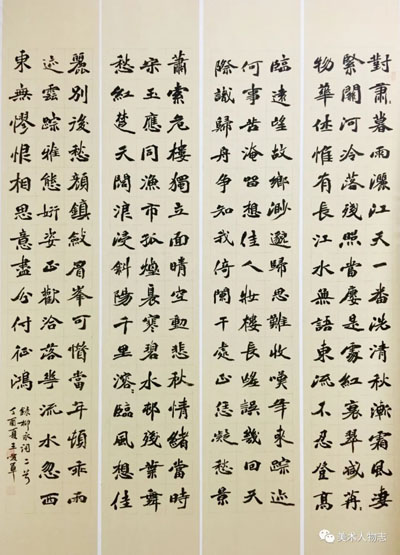 對蕭暮雨灑江天一番洗清秋漸霜風淒
緊關河冷落殘照當廔是處紅衰翠減苒
物華休惟有長江水無語東流不忍登高
臨遠望故鄉渺邈歸思難收嘆年來踪迹
何事苦淹留想佳人妝樓長望誤幾回天
際識歸舟争知我倚闌干處正恁凝愁景
蕭索危樓獨立面晴空動悲秋情緒當時
宋玉應同漁市孤煙裊寒碧水邨殘葉舞
愁紅楚天闊浪浸斜陽千里溶溶臨風想佳
麗別後愁顔鎮斂眉峯可惜當年頓乖雨
迹雲踪雅態妍姿正歡洽落華流水忽西
東無憀恨相思意盡分付征鴻
録柳永詞二首
丁酉夏王
美术人物志